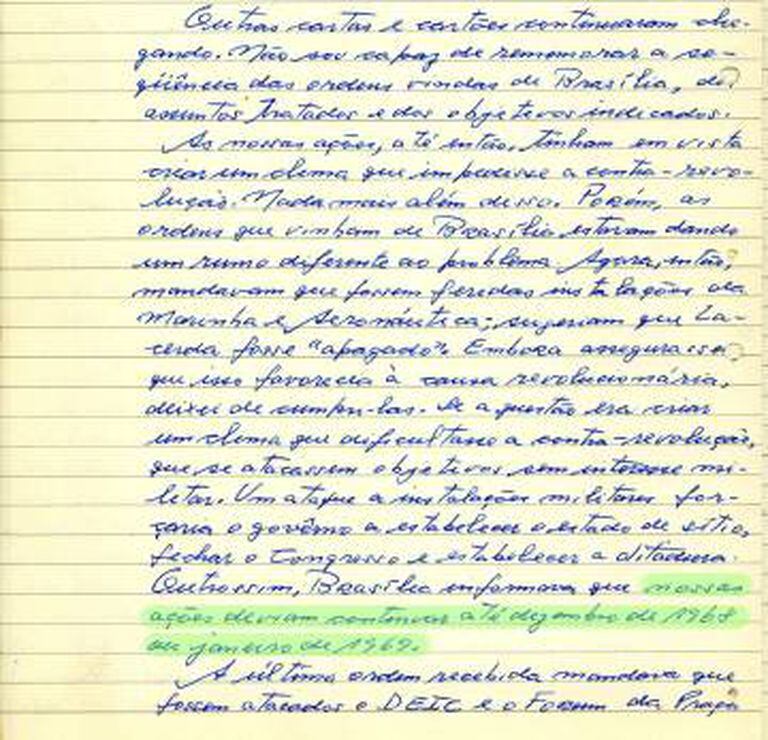 Outras cartas e cartões continuaram che-
gando. Não sou capaz de rememorar a se-
qüência das ordens vindas de Brasília, dos
assuntos tratados e dos objetivos indicados.
As nossas ações, até então, tinham em vista
criar um clima que impedisse a contra-revo-
lução. Nada mais além disso. Porém, as
ordens que vinham de Brasília, estavam dando
um rumo diferente ao problema. Agora, então,
mandavam que fossem feridas instalações da
Marinha e Aeronáutica; sugeriam que La-
cerda fosse "apagado". Embora assegurassem
que isso favorecia à causa revolucionária,
deixei de cumpri-las. Se a questão era criar
um clima que dificultasse a contra-revolução,
que se atacassem objetivos sem interesse mi-
litar. Um ataque a instalações militares for-
çaria o govêrno a estabelecer o estado de sítio,
fechar o Congresso e estabelecer a ditadura.
Outrossim, Brasília informava que nossas
ações deviam continuar até dezembro de 1968
ou janeiro de 1969.
A última ordem recebida mandava que
fossem atacados o DEIC e o Forum da Praça